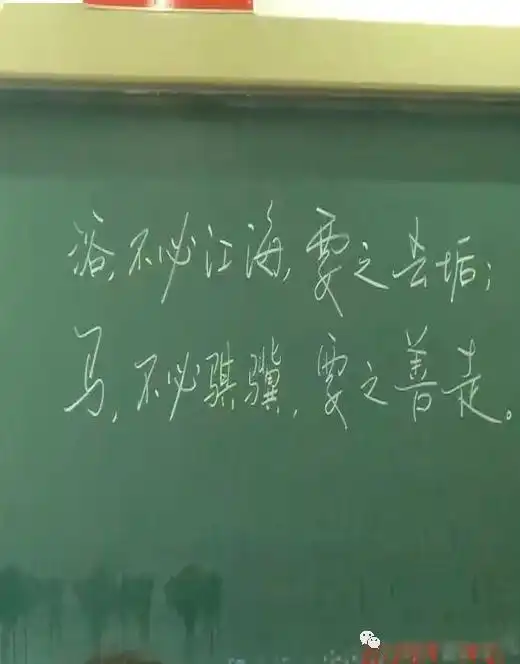 浴,不必江海,要之去垢;
马,不必骐骥,要之善走。